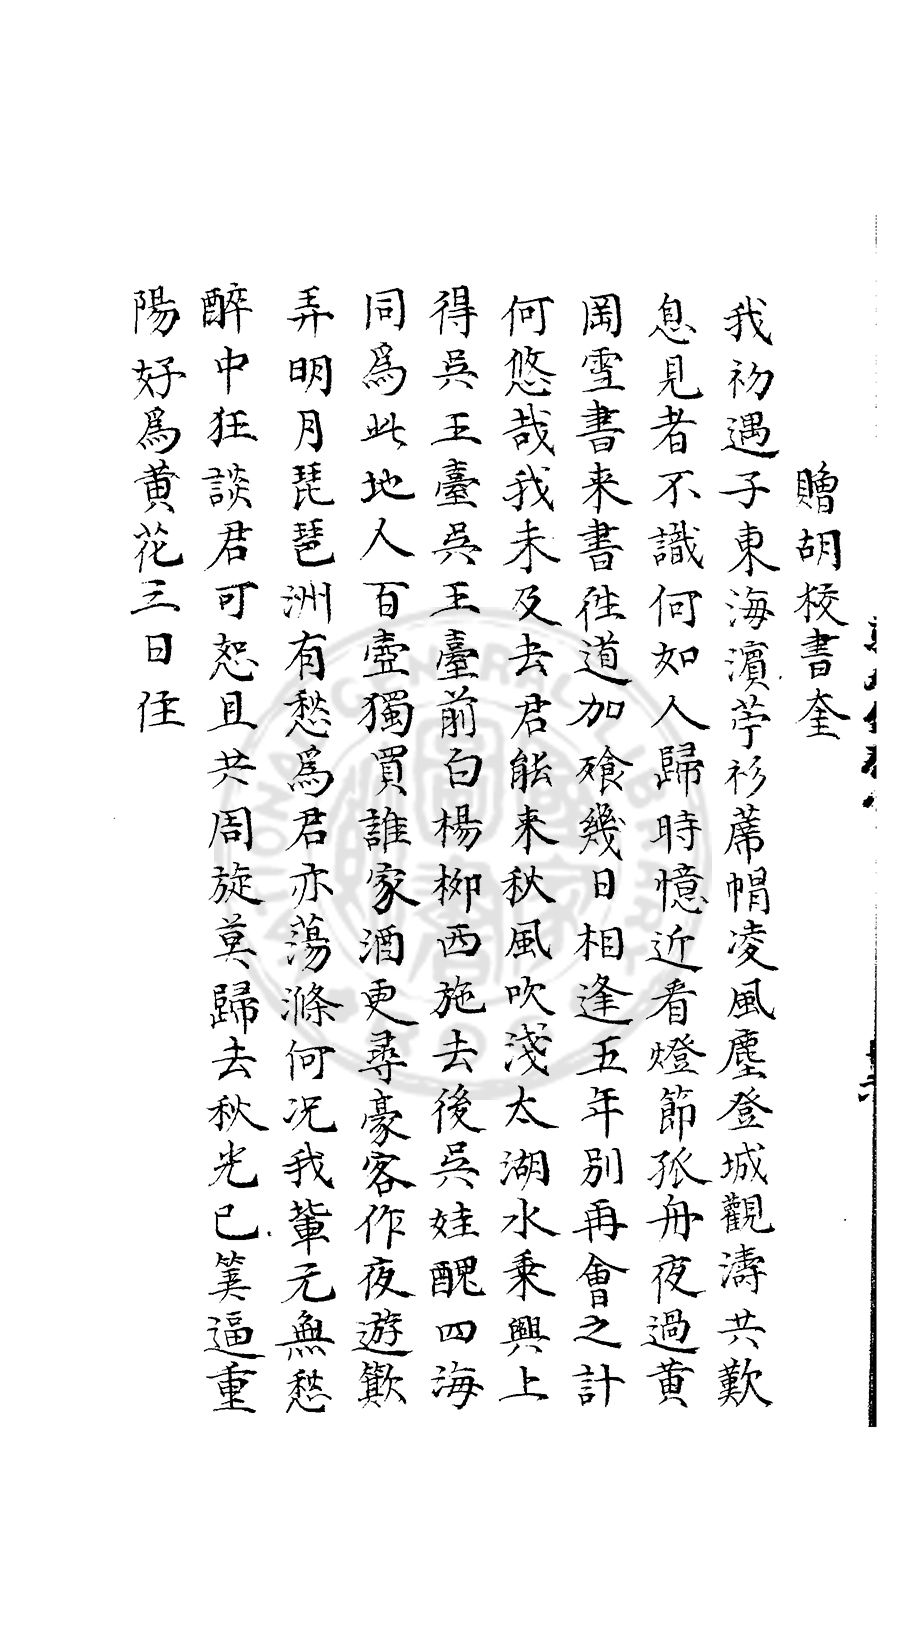 贈胡校書奎
我初遇子東海濵苧衫蓆帽凌風塵登城觀濤共歎
息見者不識何如人歸時憶近看燈節孤舟夜過黄
岡雪書来書徃道加飱幾日相逢五年别再會之計
何悠哉我未及去君能来秋風吹淺太湖水乗興上
得吳王臺吳王臺前白楊栁西施去後吳娃醜四海
同爲此地人百壺獨買誰家酒更尋豪客作夜遊歗
弄明月琵琶洲有愁爲君亦蕩滌何况我軰元無愁
醉中狂談君可恕且共周旋莫歸去秋光已筭逼重
陽好爲黄花三日住